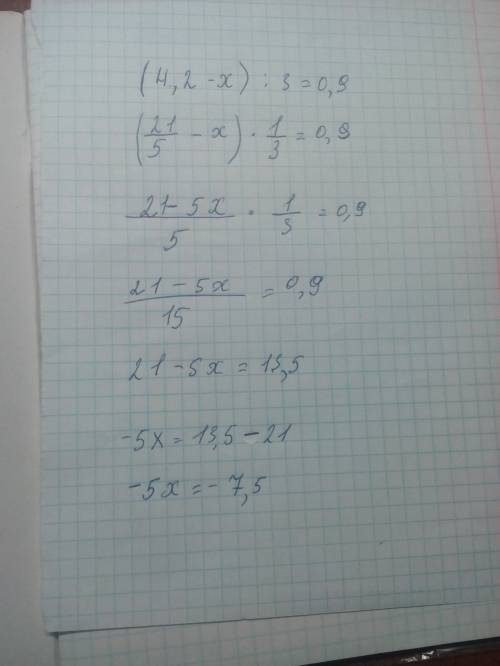 (4,2 - x) : 3 = 0,9
(21/5 - x) · 1/3 = 0,9
21 - 5x/5 · 1/3 = 0,9
21 - 5x/15 = 0,9
21 - 5x = 13,5
-5x = 13,5 - 21
-5x = - 7,5